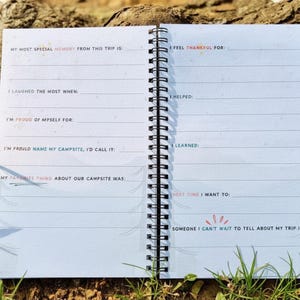 MY MOST SPECIAL MEMORY FROM THIS TRIP IS:
I LAUGHED THE MOST WHEN:
I'M PROUD OF MYSELF FOR:
I'M COULD NAME MY CAMPSITE, I'D CALL IT:
MY FAVORITE THING ABOUT OUR CAMPSITE WAS:
I FEEL THANKFUL FOR:
I HELPED:
I LEARNED:
NEXT TIME I WANT TO:
SOMEONE I CAN'T WAIT TO TELL ABOUT MY TRIP I